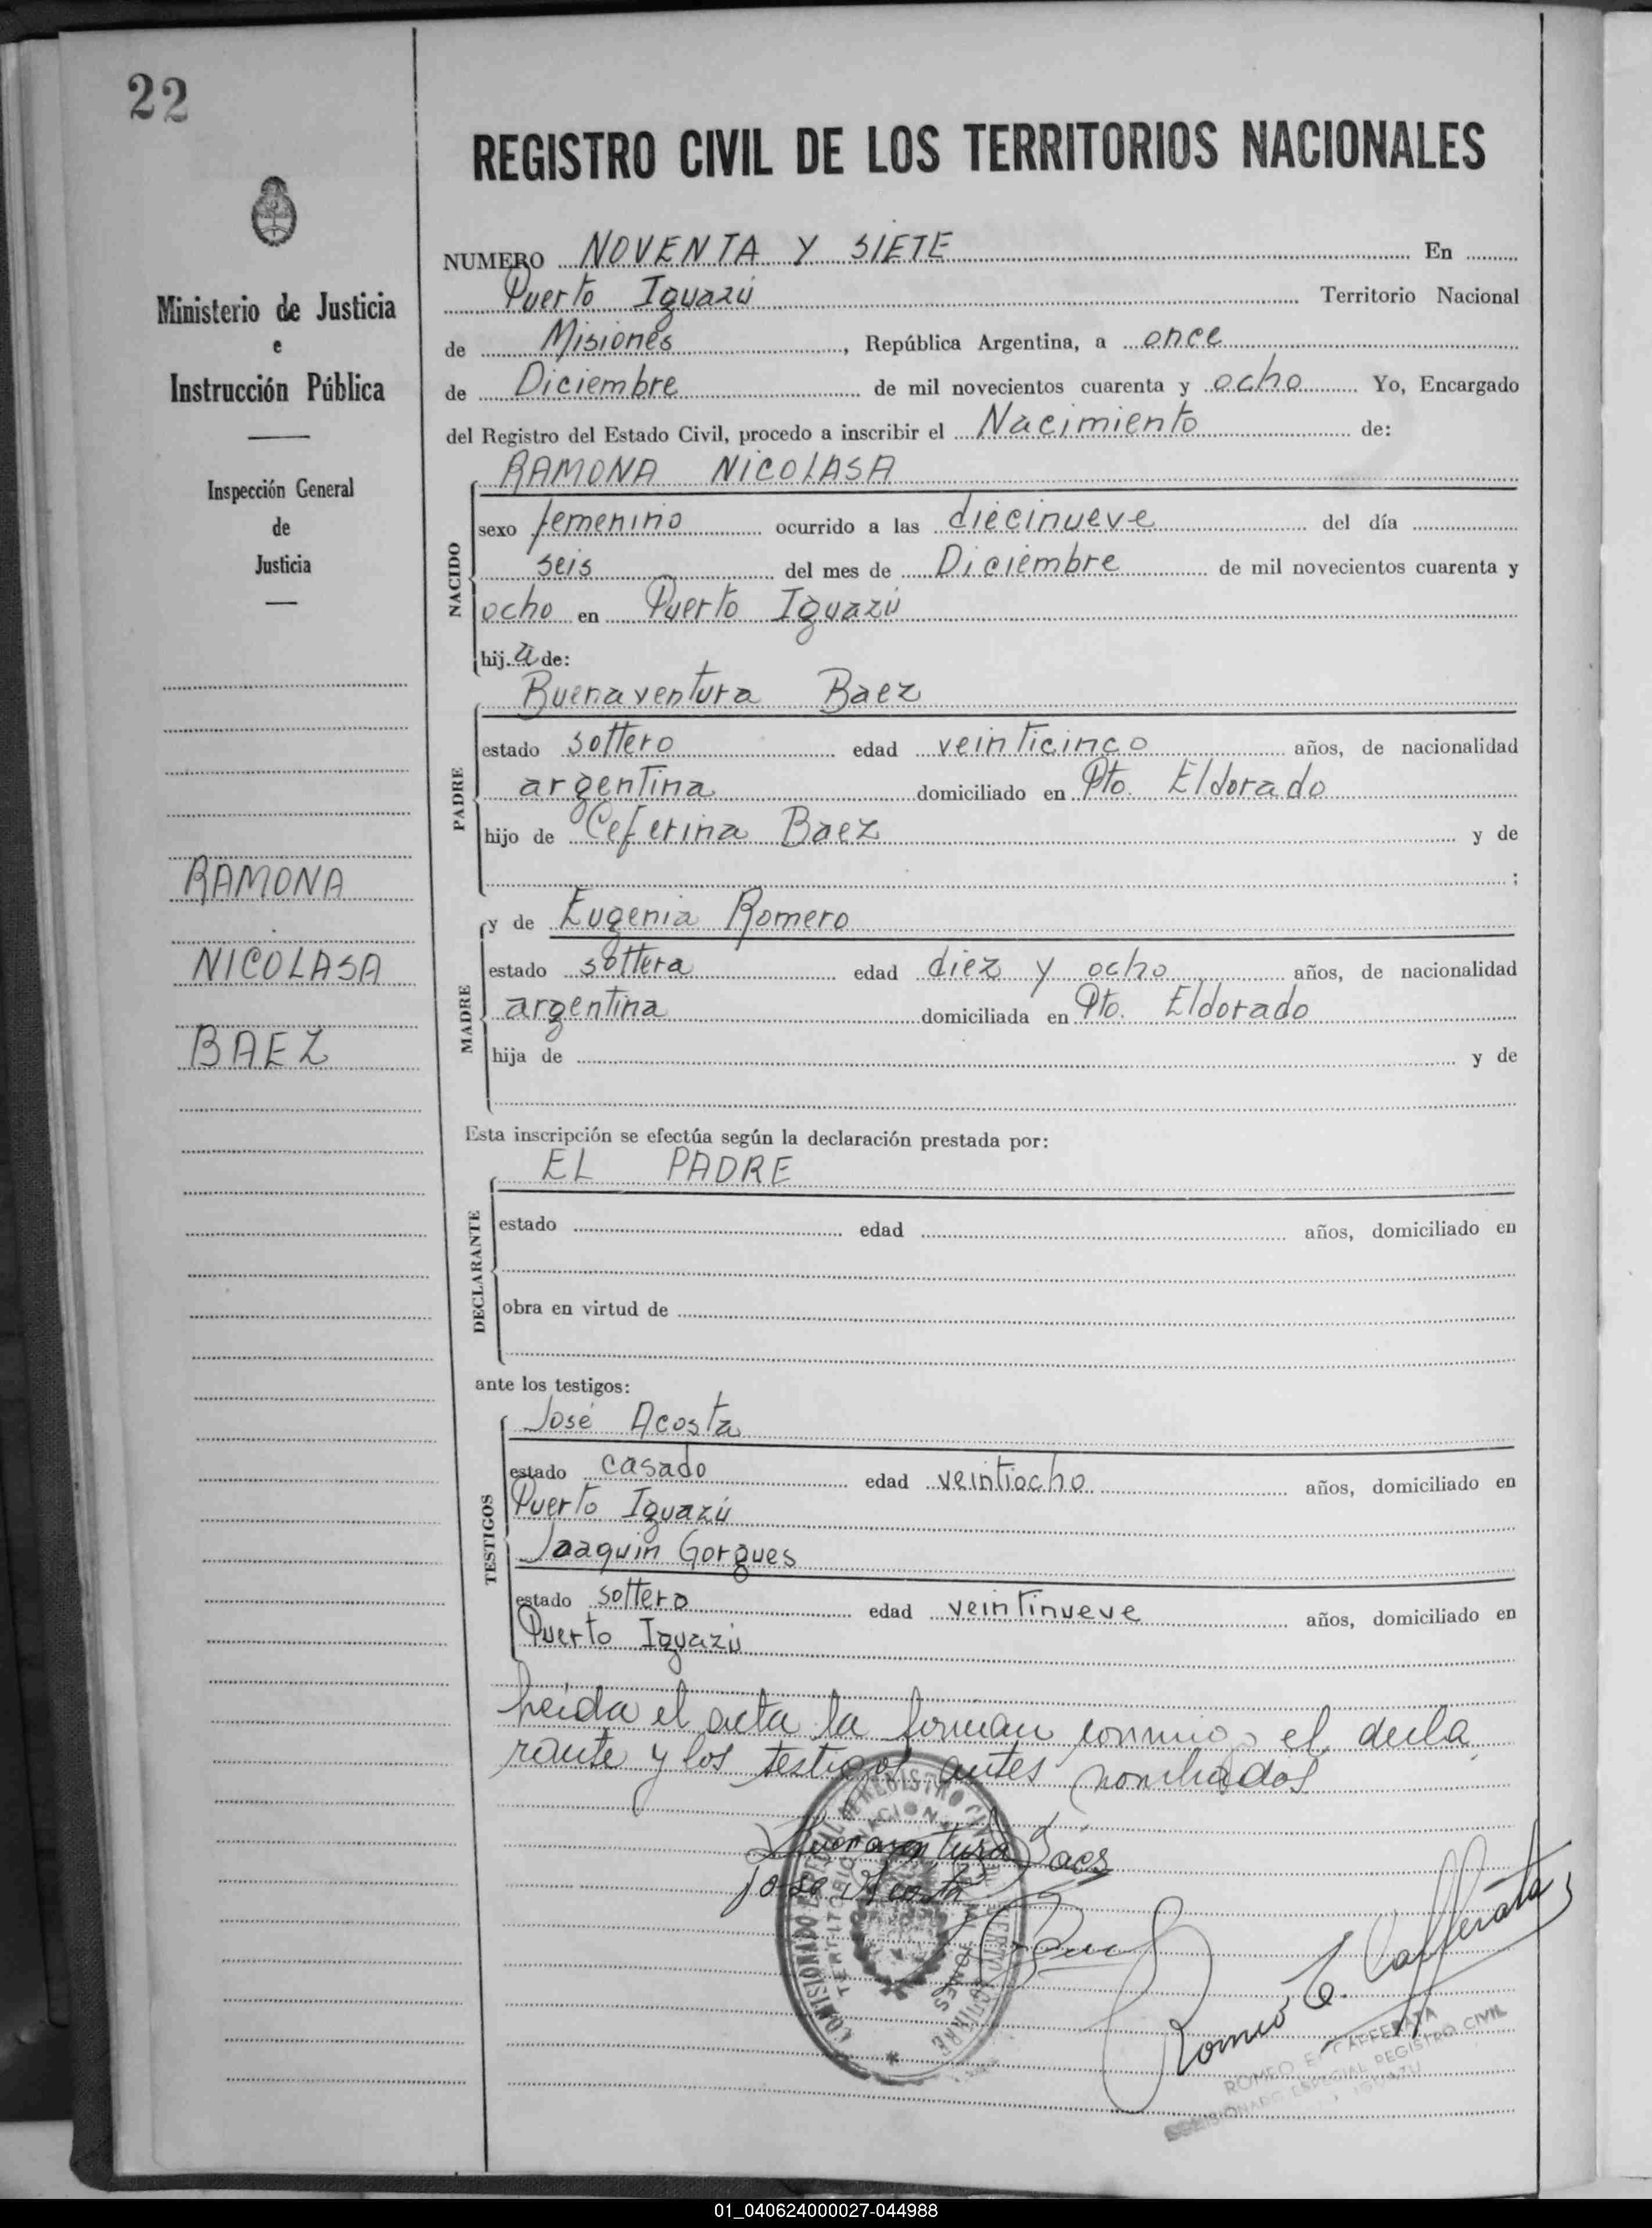 22
Ministerio de Justicia
e
Instrucción Pública
Inspección General
de
Justicia
RAMONA
NICOLASA
BAEZ
REGISTRO CIVIL DE LOS TERRITORIOS NACIONALES
NUMERO NOVENTA Y SIETE En
Puerto Iguazú Territorio Nacional
de Misiones, República Argentina, a once
de Diciembre de mil novecientos cuarenta y ocho Yo, Encargado
del Registro del Estado Civil, procedo a inscribir el Nacimiento de:
RAMONA NICOLASA
NACIDO
sexo femenino ocurrido a las diecinueve del día
seis del mes de Diciembre de mil novecientos cuarenta y
ocho en Puerto Iguazú
hij.a de:
Buenaventura Baez
PADRE
estado soltero edad veinticinco años, de nacionalidad
argentina domiciliado en Pto. Eldorado
hijo de Ceferina Baez y de
;
y de Eugenia Romero
MADRE
estado soltera edad diez y ocho años, de nacionalidad
argentina domiciliada en Pto. Eldorado
hija de y de
Esta inscripción se efectúa según la declaración prestada por:
EL PADRE
DECLARANTE
estado edad años, domiciliado en
obra en virtud de
ante los testigos:
José Acosta
TESTIGOS
estado casado edad veintiocho años, domiciliado en
Puerto Iguazú
Joaquin Gorgues
estado soltero edad veintinueve años, domiciliado en
Puerto Iguazú
Leida el acta la firman conmigo el decla
rante y los testigos antes nombrados
Buenaventura Báes
jose Acosta
Romeo E. Cafferata
ROMEO E. CAFFERATA
COMISIONADO ESPECIAL REGISTRO CIVIL
IGUAZU
01_040624000027-044988